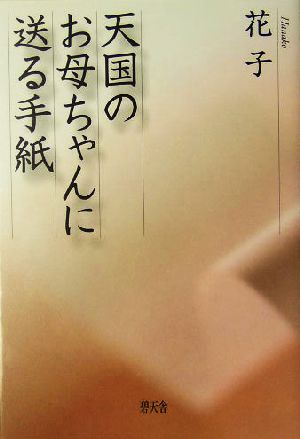 天国の
お母ちゃんに
送る手紙
花子
Hanako
碧天舎